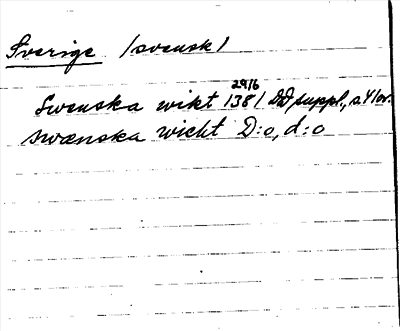 Sverige /svensk/
29/6
Swenska wikt 1381 DD suppl., s. 41 or.
swænska wicht D:o, d:o